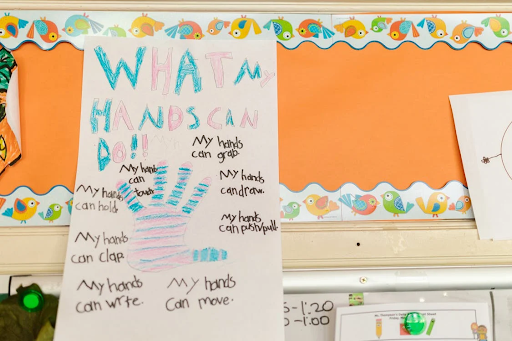 WHAT My
HANDS CAN
DO!!
My hands
can grab.
My hands
can touch.
My hands
can draw.
My hands
can hold.
My hands
can push/pull.
My hands
can clap.
My hands
can write.
My hands
can move.
5-1:20
0-1:00